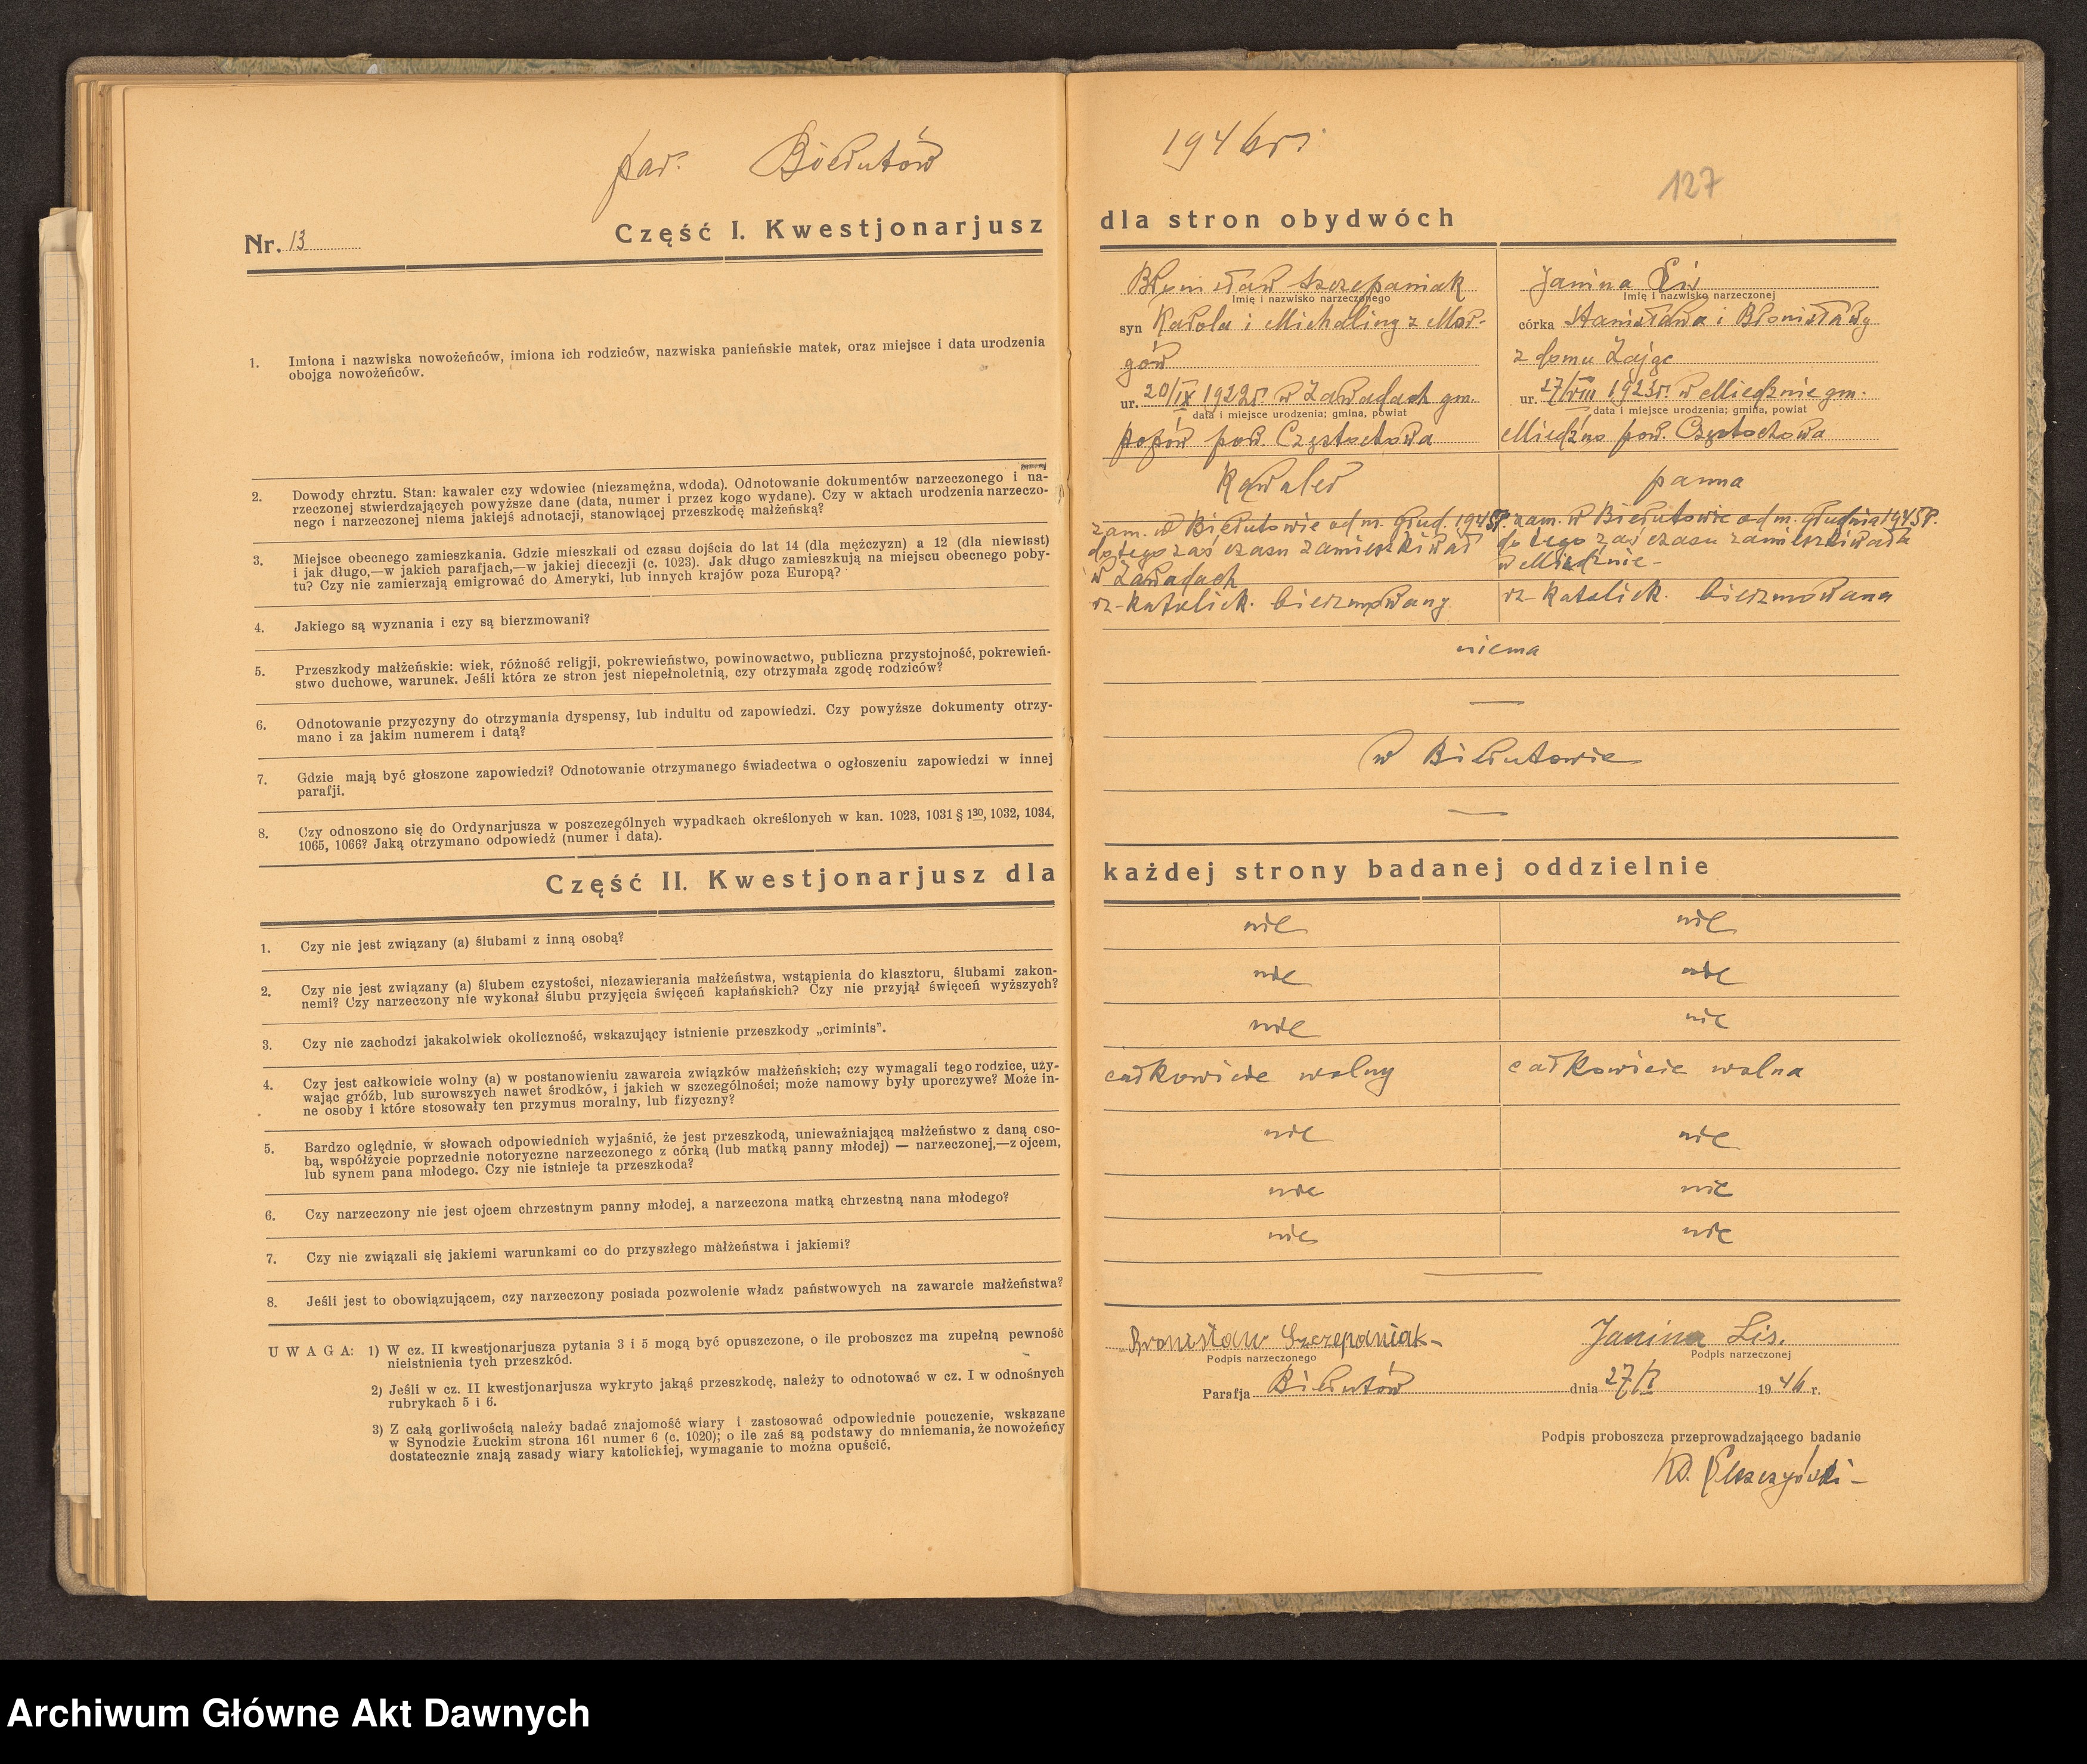 par. Bierutów
1946 r.
127
Nr. 13
Część I. Kwestjonarjusz
dla stron obydwóch
1. Imiona i nazwiska nowożeńców, imiona ich rodziców, nazwiska panieńskie matek, oraz miejsce i data urodzenia
obojga nowożeńców.
Bronisław Szczepaniak
Imię i nazwisko narzeczonego
syn Karola i Michaliny z Mor-
gów
ur. 20/IX 1922 r. w Zawadach gm.
data i miejsce urodzenia; gmina, powiat
Popów pow. Częstochowa
Janina Lis
Imię i nazwisko narzeczonej
córka Stanisława i Bronisławy
z domu Zając
ur. 27/VIII 1923 r. w Miedźnie gm.
data i miejsce urodzenia; gmina, powiat
Miedźno pow. Częstochowa
2. Dowody chrztu. Stan: kawaler czy wdowiec (niezamężna, wdoda). Odnotowanie dokumentów narzeczonego i na-
rzeczonej stwierdzających powyższe dane (data, numer i przez kogo wydane). Czy w aktach urodzenia narzeczo-
nego i narzeczonej niema jakiejś adnotacji, stanowiącej przeszkodę małżeńską?
Kawaler
panna
3. Miejsce obecnego zamieszkania. Gdzie mieszkali od czasu dojścia do lat 14 (dla mężczyzn) a 12 (dla niewiast)
i jak długo,—w jakich parafjach,—w jakiej diecezji (c. 1023). Jak długo zamieszkują na miejscu obecnego poby-
tu? Czy nie zamierzają emigrować do Ameryki, lub innych krajów poza Europą?
zam. w Bierutowie od m. grud. 1945 r.
do tego zaś czasu zamieszkiwał
w Zawadach
zam. w Bierutowie od m. grudnia 1945 r.
do tego zaś czasu zamieszkiwała
w Miedźnie -
4. Jakiego są wyznania i czy są bierzmowani?
rz-katolick. bierzmowany
rz-katolick. bierzmowana
5. Przeszkody małżeńskie: wiek, różność religji, pokrewieństwo, powinowactwo, publiczna przystojność, pokrewień-
stwo duchowe, warunek. Jeśli która ze stron jest niepełnoletnią, czy otrzymała zgodę rodziców?
niema
6. Odnotowanie przyczyny do otrzymania dyspensy, lub indultu od zapowiedzi. Czy powyższe dokumenty otrzy-
mano i za jakim numerem i datą?
—
7. Gdzie mają być głoszone zapowiedzi? Odnotowanie otrzymanego świadectwa o ogłoszeniu zapowiedzi w innej
parafji.
w Bierutowie
8. Czy odnoszono się do Ordynarjusza w poszczególnych wypadkach określonych w kan. 1023, 1031 § 1 30, 1032, 1034,
1065, 1066? Jaką otrzymano odpowiedź (numer i data).
—
Część II. Kwestjonarjusz dla
każdej strony badanej oddzielnie
1. Czy nie jest związany (a) ślubami z inną osobą?
nie nie
2. Czy nie jest związany (a) ślubem czystości, niezawierania małżeństwa, wstąpienia do klasztoru, ślubami zakon-
nemi? Czy narzeczony nie wykonał ślubu przyjęcia święceń kapłańskich? Czy nie przyjął święceń wyższych?
nie nie
3. Czy nie zachodzi jakakolwiek okoliczność, wskazujący istnienie przeszkody „criminis".
nie nie
4. Czy jest całkowicie wolny (a) w postanowieniu zawarcia związków małżeńskich; czy wymagali tego rodzice, uży-
wając gróźb, lub surowszych nawet środków, i jakich w szczególności; może namowy były uporczywe? Może in-
ne osoby i które stosowały ten przymus moralny, lub fizyczny?
całkowicie wolny
całkowicie wolna
5. Bardzo oględnie, w słowach odpowiednich wyjaśnić, że jest przeszkodą, unieważniającą małżeństwo z daną oso-
bą, współżycie poprzednie notoryczne narzeczonego z córką (lub matką panny młodej) — narzeczonej,—z ojcem,
lub synem pana młodego. Czy nie istnieje ta przeszkoda?
nie nie
6. Czy narzeczony nie jest ojcem chrzestnym panny młodej, a narzeczona matką chrzestną nana młodego?
nie nie
7. Czy nie związali się jakiemi warunkami co do przyszłego małżeństwa i jakiemi?
nie nie
8. Jeśli jest to obowiązującem, czy narzeczony posiada pozwolenie władz państwowych na zawarcie małżeństwa?
—
UWAGA: 1) W cz. II kwestjonarjusza pytania 3 i 5 mogą być opuszczone, o ile proboszcz ma zupełną pewność
nieistnienia tych przeszkód.
2) Jeśli w cz. II kwestjonarjusza wykryto jakąś przeszkodę, należy to odnotować w cz. I w odnośnych
rubrykach 5 i 6.
3) Z całą gorliwością należy badać znajomość wiary i zastosować odpowiednie pouczenie, wskazane
w Synodzie Łuckim strona 161 numer 6 (c. 1020); o ile zaś są podstawy do mniemania, że nowożeńcy
dostatecznie znają zasady wiary katolickiej, wymaganie to można opuścić.
Bronisław Szczepaniak
Podpis narzeczonego
Janina Lis.
Podpis narzeczonej
Parafja Bierutów dnia 27/I 1946 r.
Podpis proboszcza przeprowadzającego badanie
Ks.
Archiwum Główne Akt Dawnych